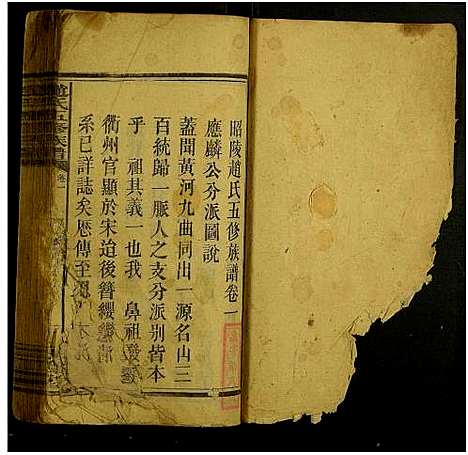 昭陵趙氏五修族譜卷一
應麟公分派圖說
蓋聞黃河九曲同出一源名山三
百統歸一脈人之支分派別皆本
乎 祖其義一也我 鼻祖
衢州官顯於宋迨後簪纓
系已詳誌矣歷傳至
趙氏五修族譜 卷一